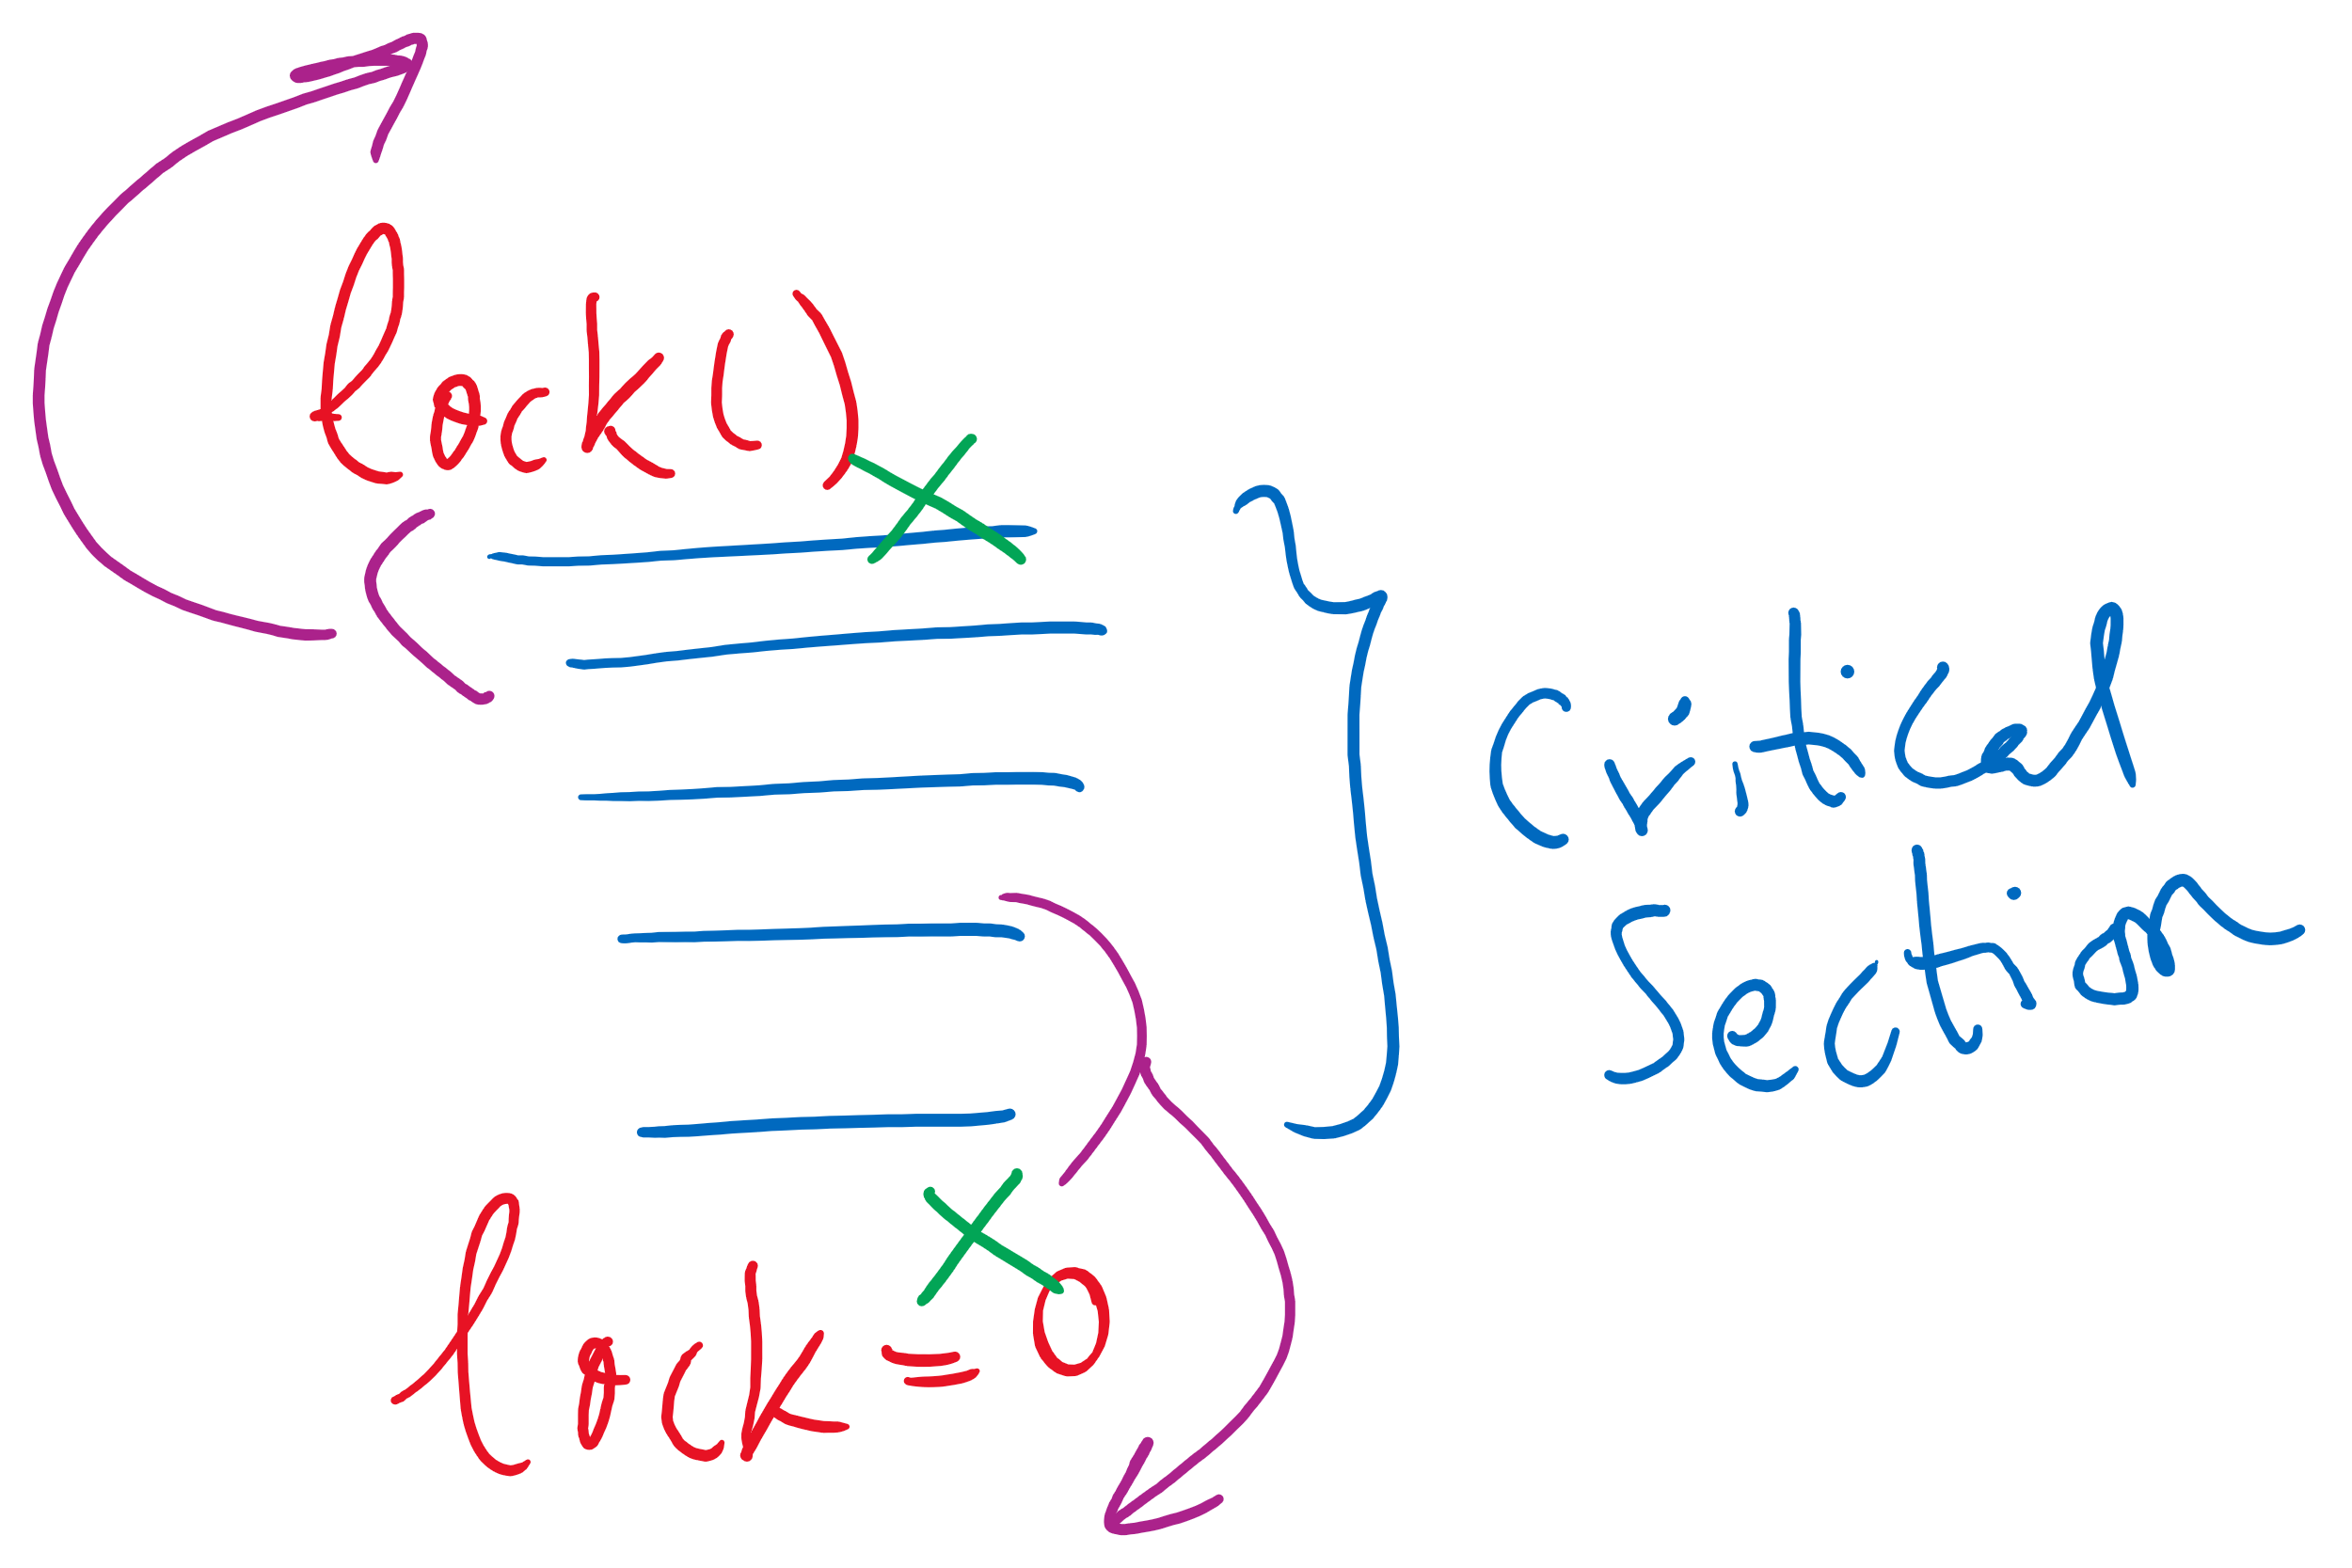 lock()
critical
section
lock = 0